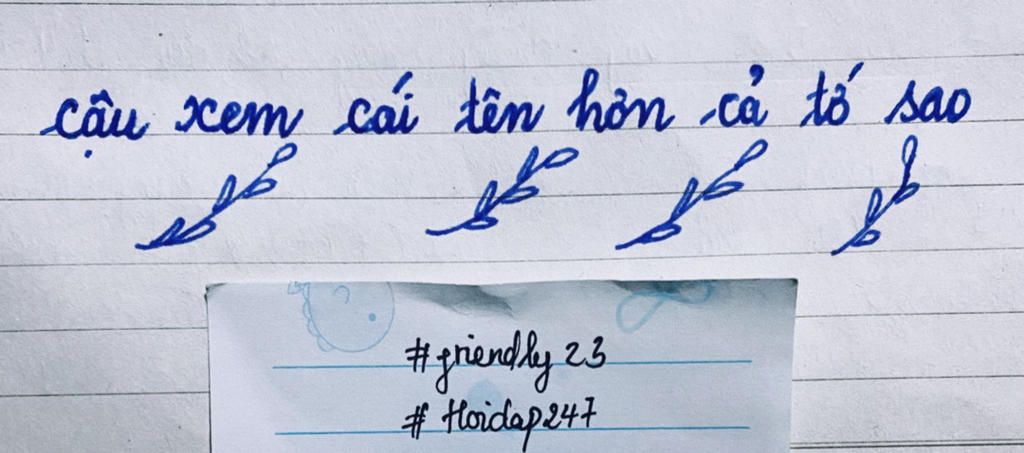 cậu xem cái tên hơn cả tớ sao
#friendly 23
# Hoidap247